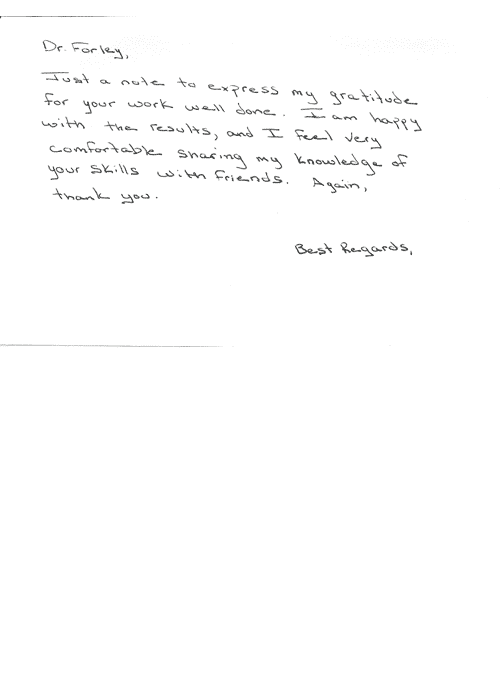 Dr. Forley,
Just a note to express my gratitude
for your work well done. I am happy
with the results, and I feel very
comfortable sharing my knowledge of
your skills with friends. Again,
thank you.
Best Regards,